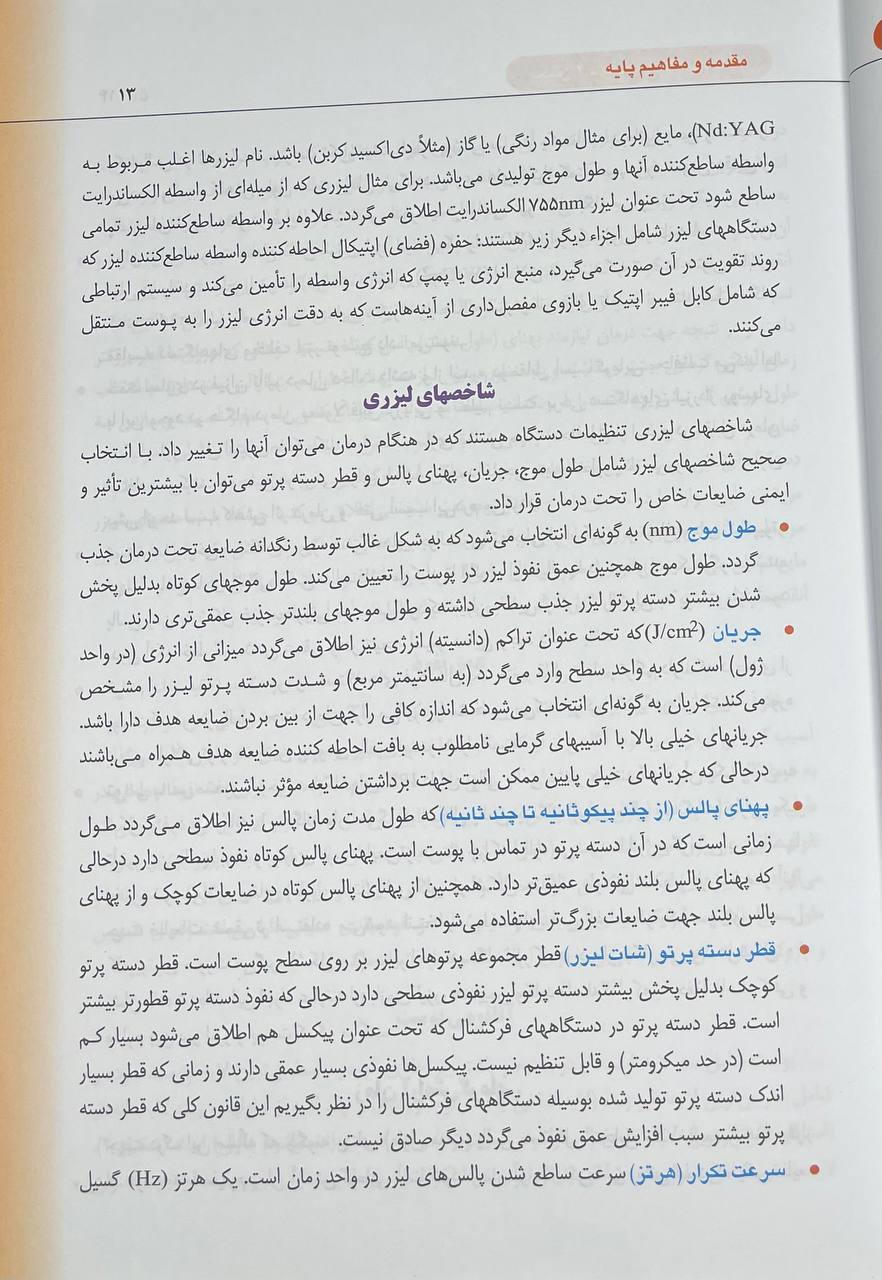 مقدمه و مفاهیم پایه
۱۳
Nd:YAG)، مایع (برای مثال مواد رنگی) یا گاز (مثلاً دی‌اکسید کربن) باشد. نام لیزرها اغلب مربوط به
واسطه ساطع‌کننده آنها و طول موج تولیدی می‌باشد. برای مثال لیزری که از میله‌ای از واسطه الکساندرایت
ساطع شود تحت عنوان لیزر ۷۵۵nm الکساندرایت اطلاق می‌گردد. علاوه بر واسطه ساطع‌کننده لیزر تمامی
دستگاههای لیزر شامل اجزاء دیگر زیر هستند: حفره (فضای) اپتیکال احاطه کننده واسطه ساطع‌کننده لیزر که
روند تقویت در آن صورت می‌گیرد، منبع انرژی یا پمپ که انرژی واسطه را تأمین می‌کند و سیستم ارتباطی
که شامل کابل فیبر اپتیک یا بازوی مفصل‌داری از آینه‌هاست که به دقت انرژی لیزر را به پوست منتقل
می‌کنند.
شاخصهای لیزری
شاخصهای لیزری تنظیمات دستگاه هستند که در هنگام درمان می‌توان آنها را تغییر داد. با انتخاب
صحیح شاخصهای لیزر شامل طول موج، جریان، پهنای پالس و قطر دسته پرتو می‌توان با بیشترین تأثیر و
ایمنی ضایعات خاص را تحت درمان قرار داد.
• طول موج (nm) به گونه‌ای انتخاب می‌شود که به شکل غالب توسط رنگدانه ضایعه تحت درمان جذب
گردد. طول موج همچنین عمق نفوذ لیزر در پوست را تعیین می‌کند. طول موجهای کوتاه بدلیل پخش
شدن بیشتر دسته پرتو لیزر جذب سطحی داشته و طول موجهای بلندتر جذب عمقی‌تری دارند.
• جریان (J/cm²) که تحت عنوان تراکم (دانسیته) انرژی نیز اطلاق می‌گردد میزانی از انرژی (در واحد
ژول) است که به واحد سطح وارد می‌گردد (به سانتیمتر مربع) و شدت دسته پرتو لیزر را مشخص
می‌کند. جریان به گونه‌ای انتخاب می‌شود که اندازه کافی را جهت از بین بردن ضایعه هدف دارا باشد.
جریانهای خیلی بالا با آسیبهای گرمایی نامطلوب به بافت احاطه کننده ضایعه هدف همراه می‌باشند
درحالی که جریانهای خیلی پایین ممکن است جهت برداشتن ضایعه مؤثر نباشند.
• پهنای پالس (از چند پیکو ثانیه تا چند ثانیه) که طول مدت زمان پالس نیز اطلاق می‌گردد طول
زمانی است که در آن دسته پرتو در تماس با پوست است. پهنای پالس کوتاه نفوذ سطحی دارد درحالی
که پهنای پالس بلند نفوذی عمیق‌تر دارد. همچنین از پهنای پالس کوتاه در ضایعات کوچک و از پهنای
پالس بلند جهت ضایعات بزرگ‌تر استفاده می‌شود.
• قطر دسته پرتو (شات لیزر) قطر مجموعه پرتوهای لیزر بر روی سطح پوست است. قطر دسته پرتو
کوچک بدلیل پخش بیشتر دسته پرتو لیزر نفوذی سطحی دارد درحالی که نفوذ دسته پرتو قطورتر بیشتر
است. قطر دسته پرتو در دستگاههای فرکشنال که تحت عنوان پیکسل هم اطلاق می‌شود بسیار کم
است (در حد میکرومتر) و قابل تنظیم نیست. پیکسل‌ها نفوذی بسیار عمقی دارند و زمانی که قطر بسیار
اندک دسته پرتو تولید شده بوسیله دستگاههای فرکشنال را در نظر بگیریم این قانون کلی که قطر دسته
پرتو بیشتر سبب افزایش عمق نفوذ می‌گردد دیگر صادق نیست.
• سرعت تکرار (هرتز) سرعت ساطع شدن پالس‌های لیزر در واحد زمان است. یک هرتز (Hz) گسیل